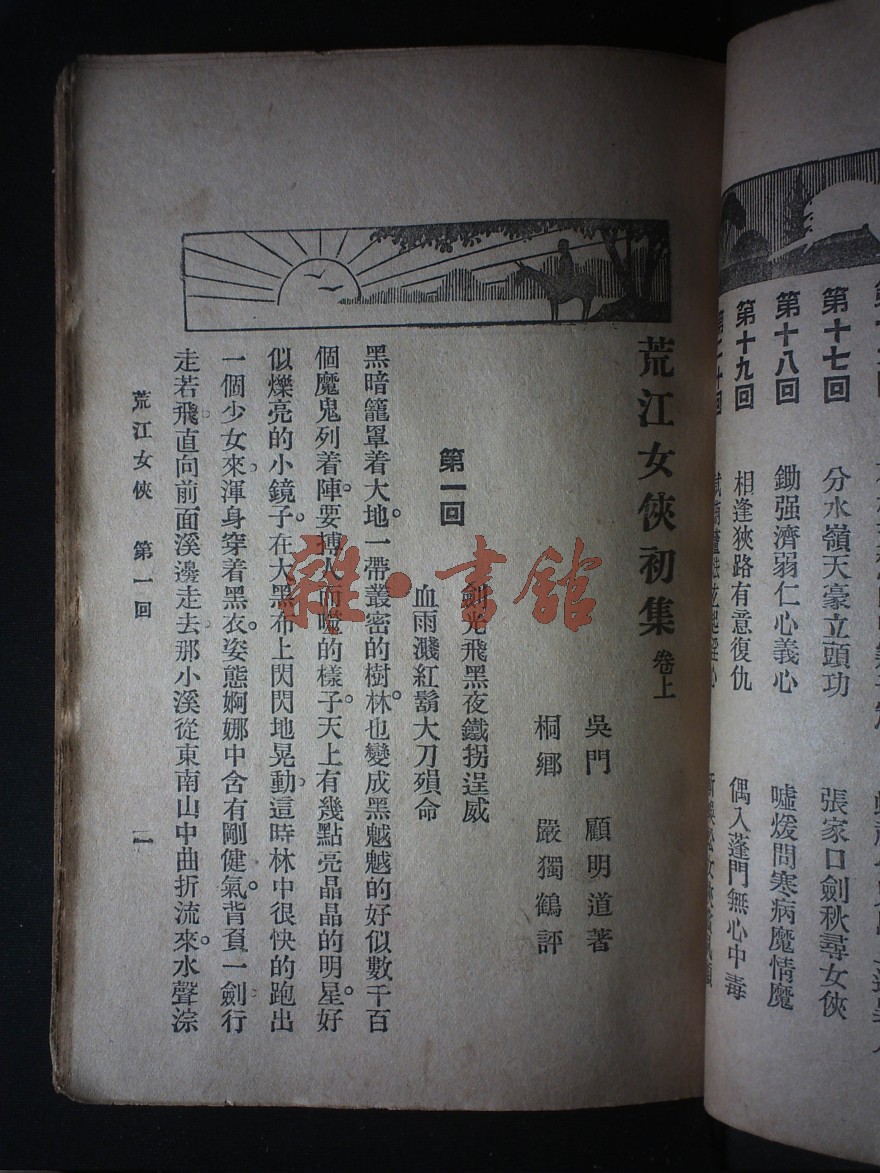 第十七回 分水嶺天豪立頭功 張家口劍秋尋女俠
第十八回 鋤强濟弱仁心義心 噓煖問寒病魔情魔
第十九回 相逢狹路有意復仇 偶入蓬門無心中毒
荒江女俠初集 卷上
吳門 顧明道著
桐鄉 嚴獨鶴評
第一回 劍光飛黑夜鐵拐逞威
血雨濺紅鬍大刀殞命
黑暗籠罩着大地。一帶叢密的樹林。也變成黑魆魆的好似數千百
個魔鬼列着陣。要搏人而噬的樣子。天上有幾點亮晶晶的明星。好
似爍亮的小鏡子。在大黑布上閃閃地晃動。這時林中很快的跑出
一個少女來。渾身穿着黑衣。姿態婀娜中含有剛健氣。背負一劍。行
走若飛。直向前面溪邊走去。那小溪從東南山中曲折流來。水聲淙
荒江女俠 第一回 一
雜·書館